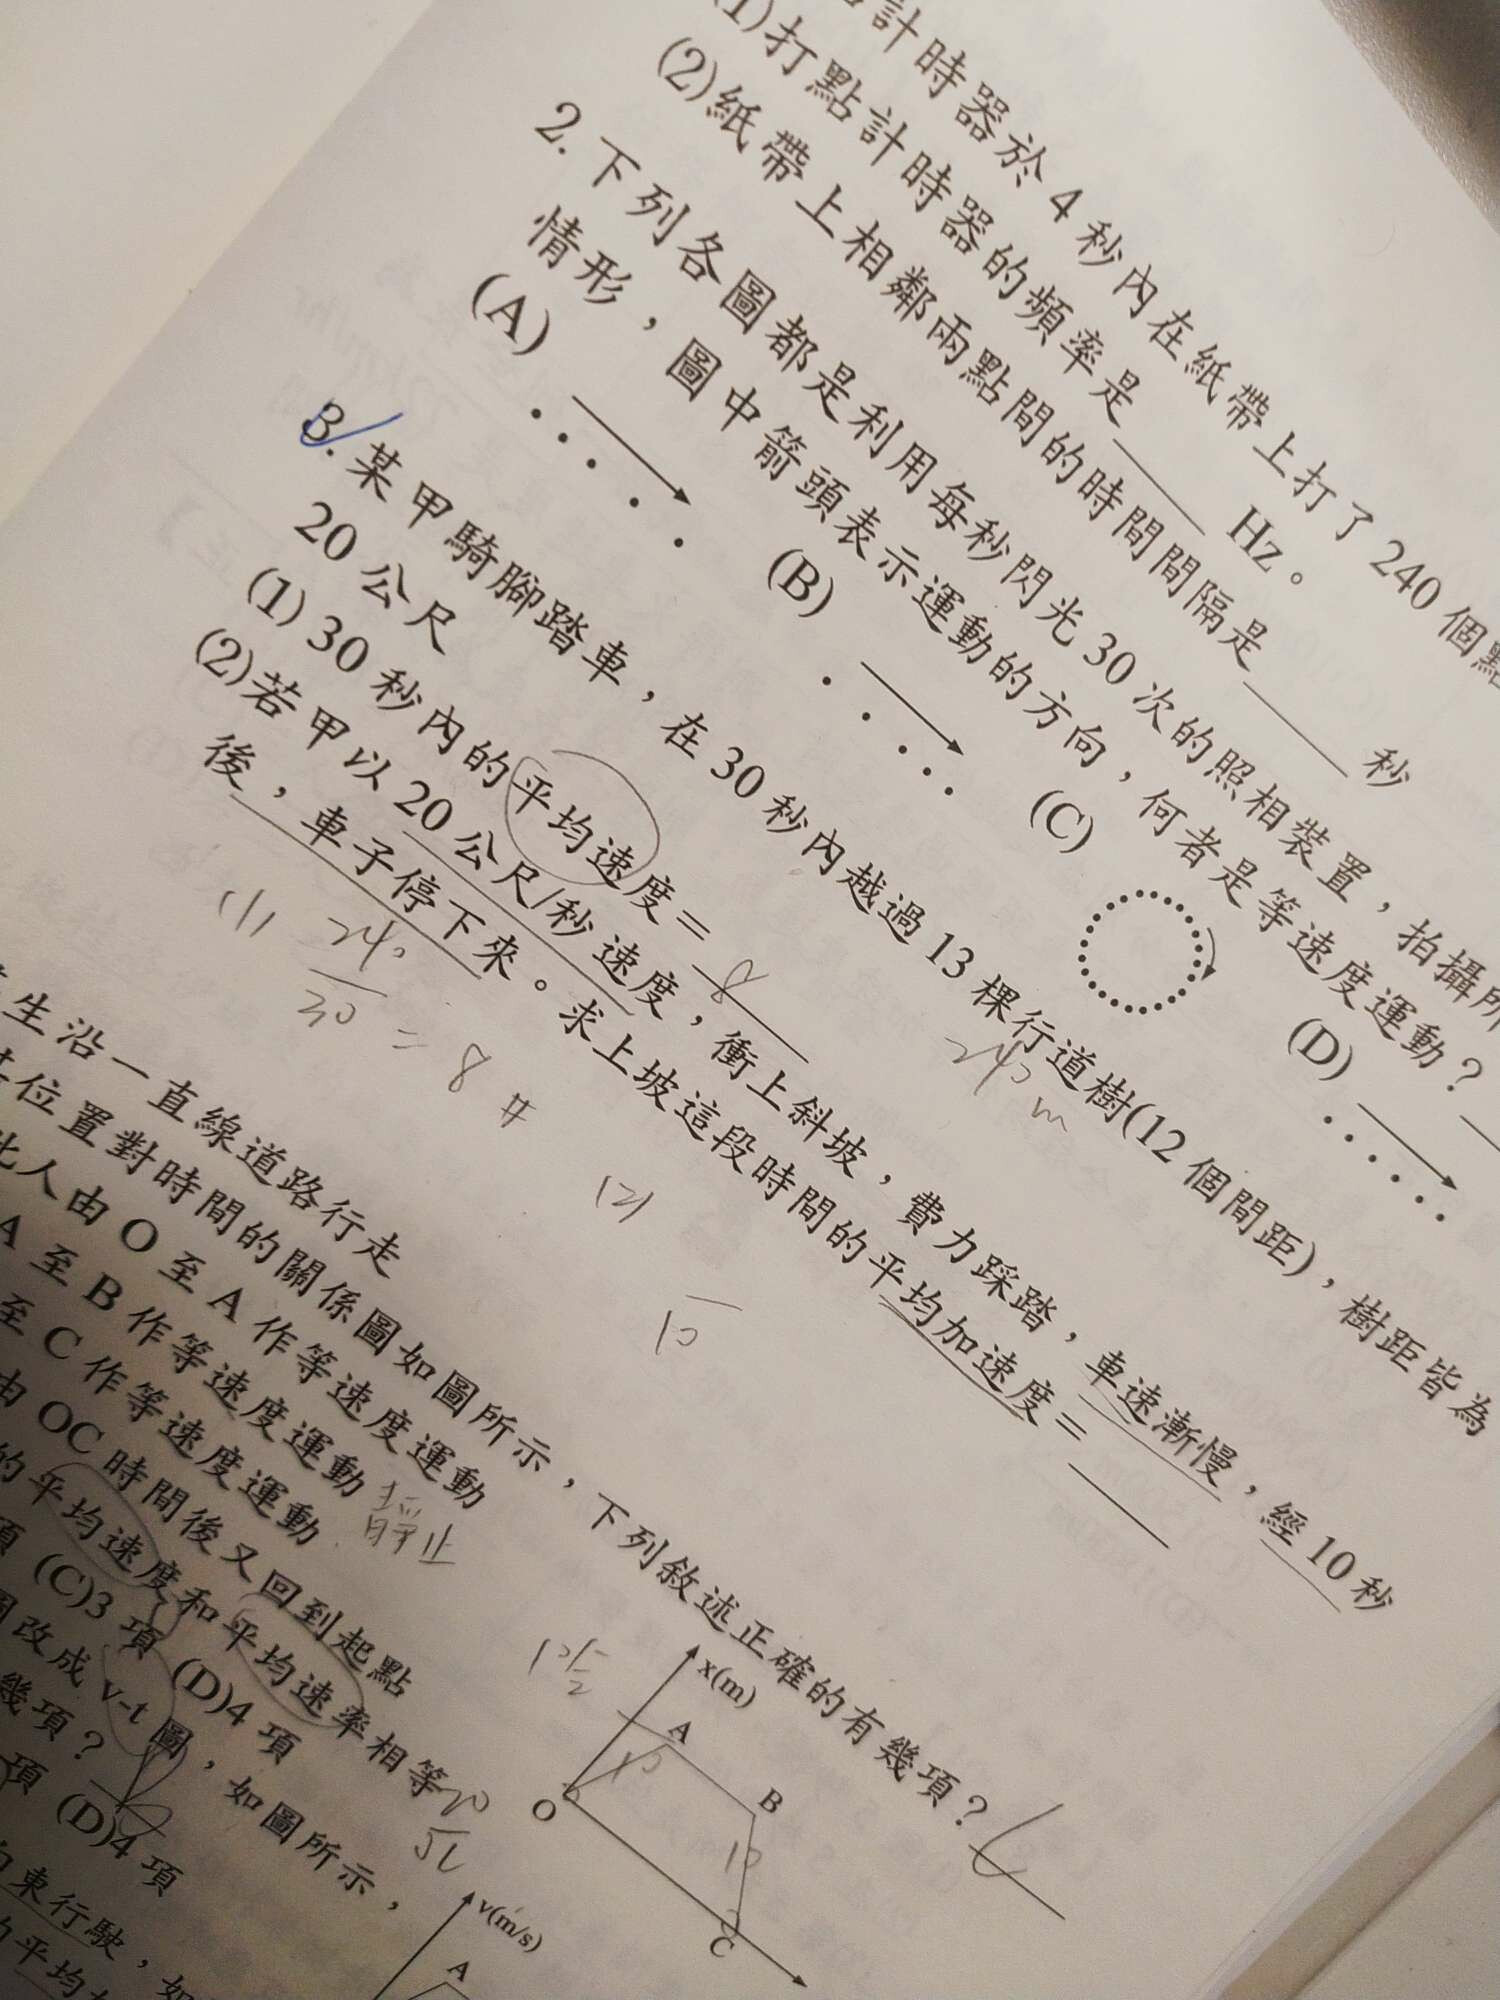 計時器於 4 秒內在紙帶上打了 240 個點
(1)打點計時器的頻率是______ Hz。
(2)紙帶上相鄰兩點間的時間間隔是______ 秒
2. 下列各圖都是利用每秒閃光 30 次的照相裝置，拍攝所
情形，圖中箭頭表示運動的方向，何者是等速度運動？
(A)
(B)
(C)
(D)
3. 某甲騎腳踏車，在 30 秒內越過 13 棵行道樹(12 個間距)，樹距皆為
20 公尺
240 m
(1) 30 秒內的平均速度＝ 8
(2)若甲以 20 公尺/秒速度，衝上斜坡，費力踩踏，車速漸慢，經 10 秒
後，車子停下來。求上坡這段時間的平均加速度＝______
(1) 240
30 = 8 #
(2)
10
生沿一直線道路行走
位置對時間的關係圖如圖所示，下列敘述正確的有幾項？
此人由 O 至 A 作等速度運動
A 至 B 作等速度運動 靜止
至 C 作等速度運動
由 OC 時間後又回到起點
的平均速度和平均速率相等
項 (C)3 項 (D)4 項
x(m)
A
B
O
C
圖改成 v-t 圖，如圖所示，
幾項？
項 (D)4 項
v(m/s)
A
向東行駛，如
的平均